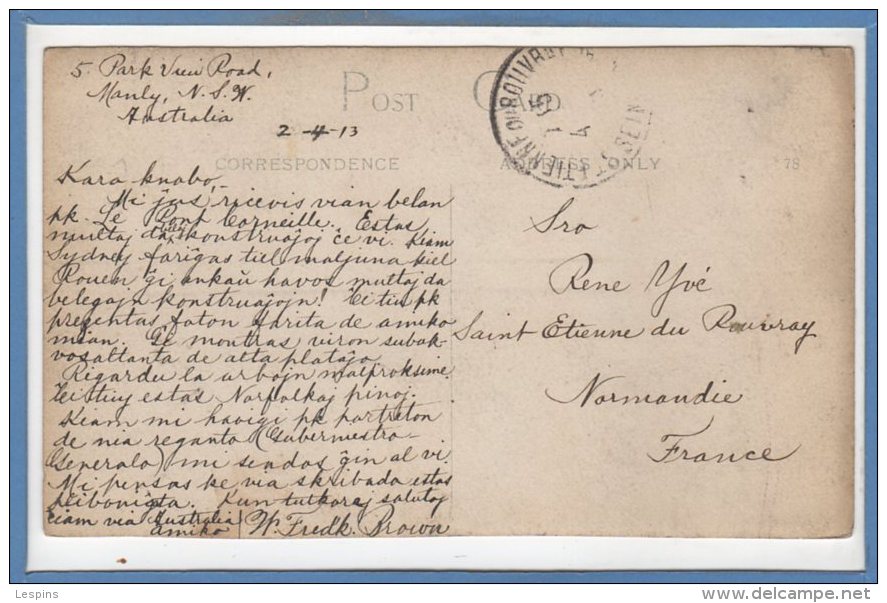 5. Park View Road,
Manly, N.S.W.
Australia
2-4-13
POST CARD
CORRESPONDENCE
ADDRESS ONLY
78
ST ETIENNE DU ROUVRAY
SEINE IN
Kara knabo,-
Mi jus ricevis vian belan
pk. Le Pont Corneille. Estas
multaj konstruaĵoj ĉe vi. Kiam
Sydney fariĝas tiel maljuna kiel
Rouen ĝi ankaŭ havos multaj da
belegajn konstruaĵojn! Ĉi tiu pk
prezentas foton farita de amiko
mian. Ĝe montras viron subak-
vosaltanta de alta platajo.
Rigardu la arbojn malproksime.
Ĉi tiuy estas Norfolkaj pinoj.
Kiam mi haviĝi pk portreton
de nia reganto (Gubernestro-
Generalo) mi sendos ĝin al vi.
Mi pensas ke via skribada estas
plibonigta. Kun tutkoraj salutoj
ĉiam via Australia
amiko
W. Fredk. Brown
Sro
Rene Yvé
Saint Etienne du Rouvray
Normandie
France
Lespins
www.delcampe.net